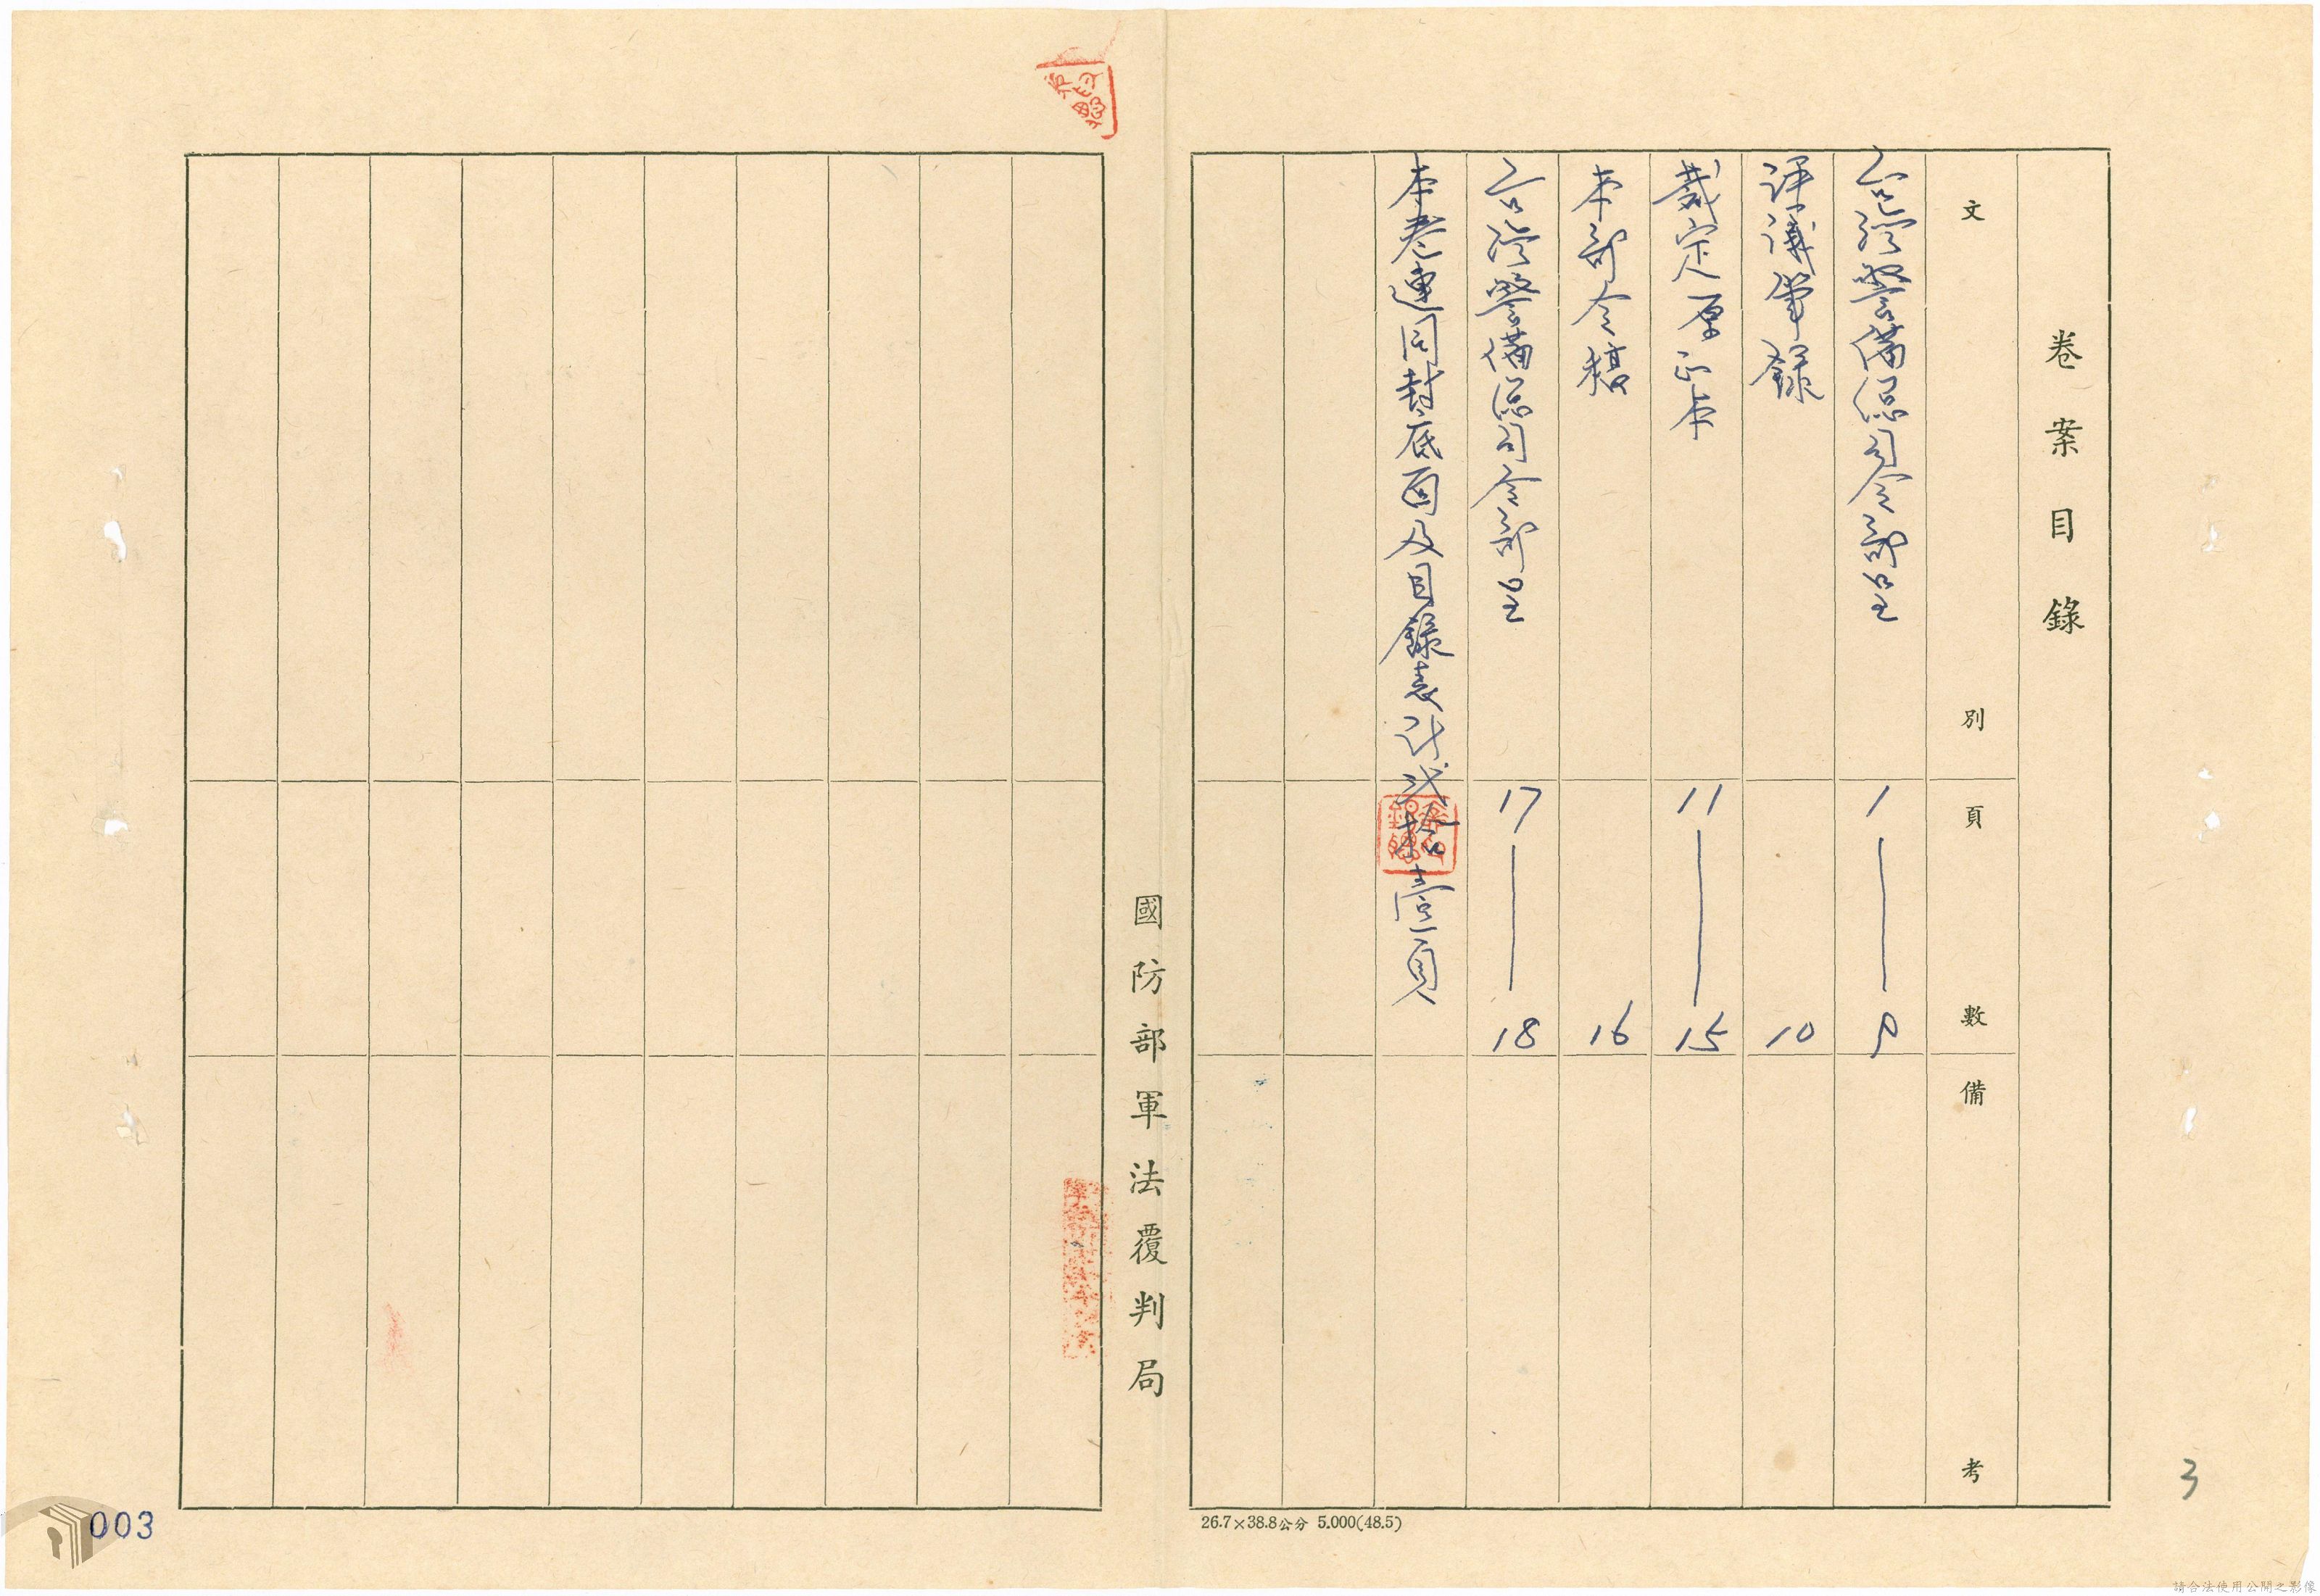 卷案目錄
文別 頁數 備考
台灣警備總司令部呈 1—9
評議筆錄 10
裁定原正本 11—15
本部令稿 16
台灣警備總司令部呈 17—18
本卷連同封底面及目錄表計弍拾壹頁
國防部軍法覆判局
26.7×38.8公分 5.000(48.5)
3
003
請合法使用公開之影像